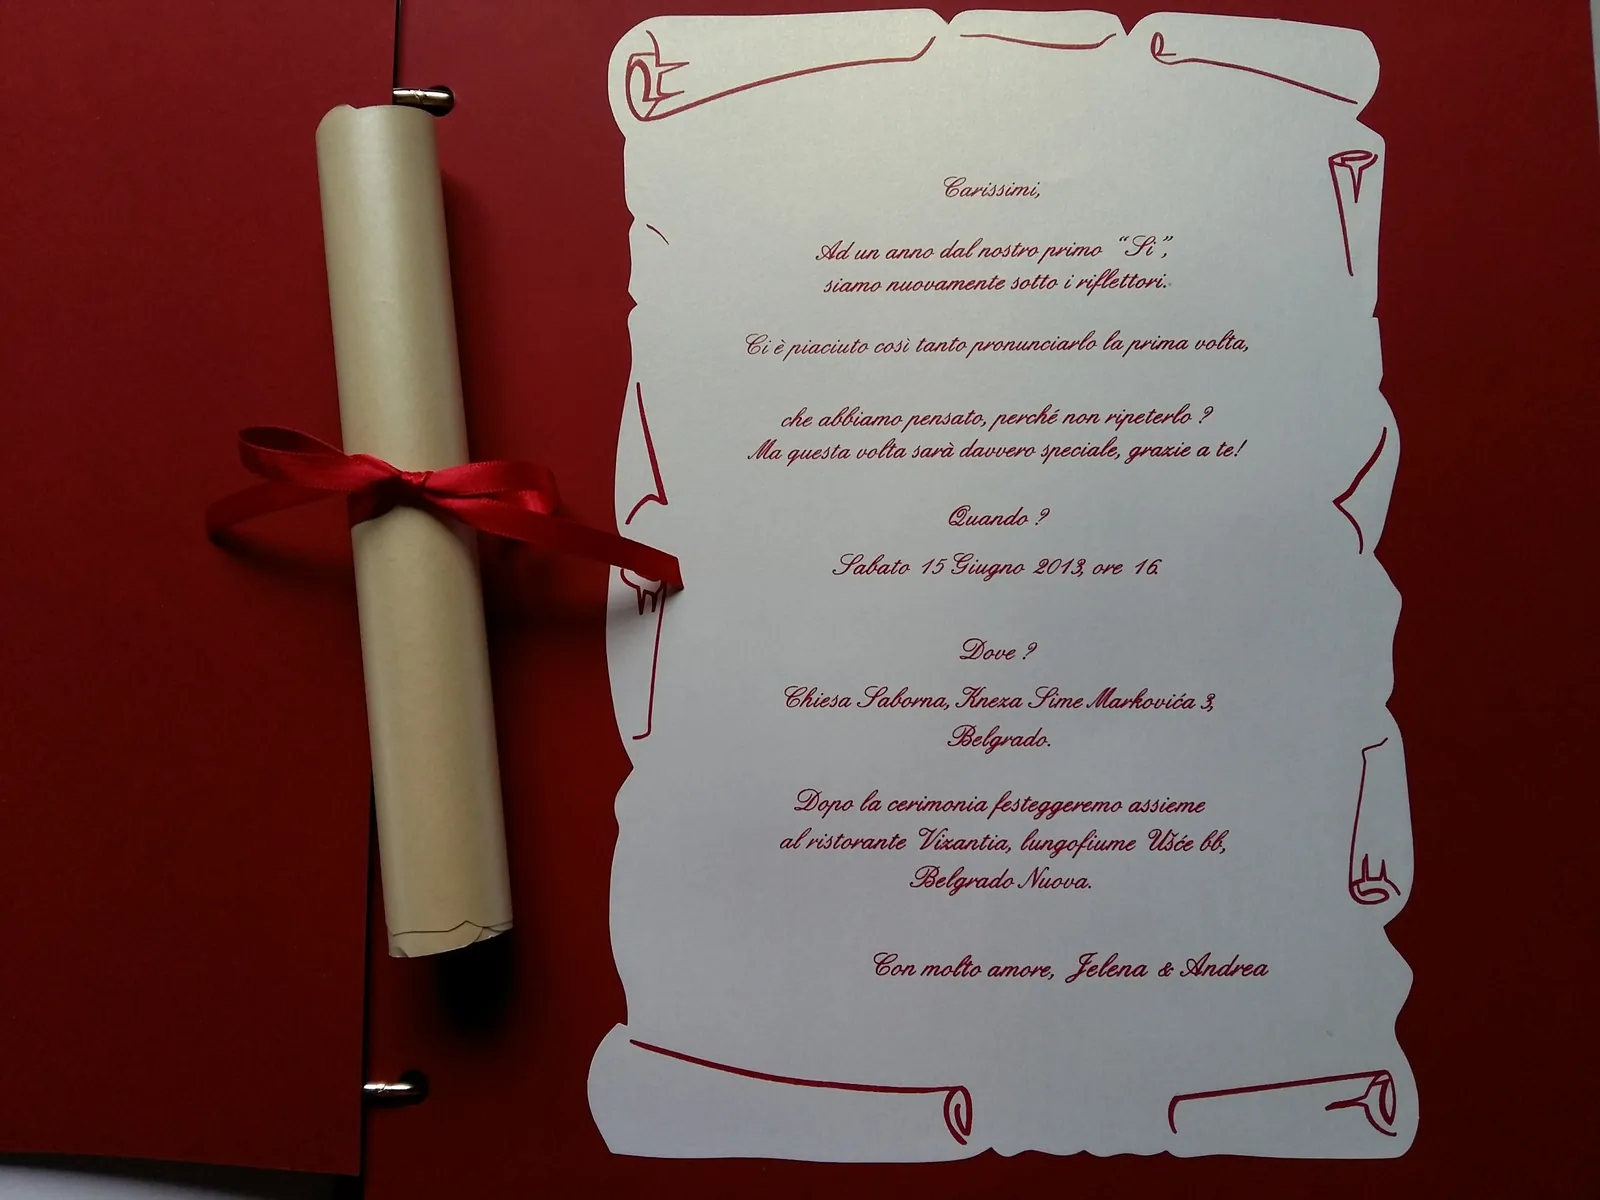 Carissimi,
Ad un anno dal nostro primo "Si",
siamo nuovamente sotto i riflettori.
Ci è piaciuto così tanto pronunciarlo la prima volta,
che abbiamo pensato, perché non ripeterlo ?
Ma questa volta sarà davvero speciale, grazie a te!
Quando ?
Sabato 15 Giugno 2013, ore 16.
Dove ?
Chiesa Saborna, Kneza Sime Markovića 3,
Belgrado.
Dopo la cerimonia festeggeremo assieme
al ristorante Vizantia, lungofiume Ušće bb,
Belgrado Nuova.
Con molto amore, Jelena & Andrea